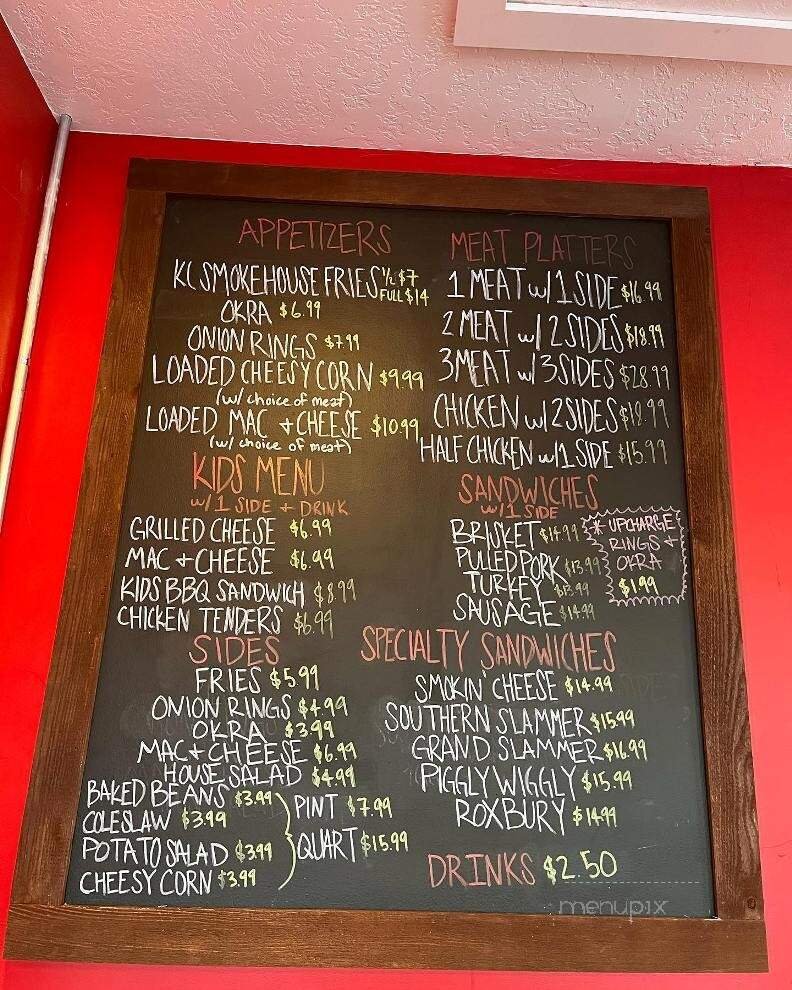 APPETIZERS
KC SMOKEHOUSE FRIES 1/2 $7
FULL $14
OKRA $6.99
ONION RINGS $7.99
LOADED CHEESY CORN $9.99
(w/ choice of meat)
LOADED MAC + CHEESE $10.99
(w/ choice of meat)
KIDS MENU
w/ 1 SIDE + DRINK
GRILLED CHEESE $6.99
MAC + CHEESE $6.99
KIDS BBQ SANDWICH $8.99
CHICKEN TENDERS $6.99
SIDES
FRIES $5.99
ONION RINGS $4.99
OKRA $3.99
MAC + CHEESE $6.99
HOUSE SALAD $4.99
BAKED BEANS $3.99
COLESLAW $3.99
POTATO SALAD $3.99
CHEESY CORN $3.99
PINT $7.99
QUART $15.99
MEAT PLATTERS
1 MEAT w/ 1 SIDE $16.99
2 MEAT w/ 2 SIDES $18.99
3 MEAT w/ 3 SIDES $28.99
CHICKEN w/ 2 SIDES $18.99
HALF CHICKEN w/ 1 SIDE $15.99
SANDWICHES
w/ 1 SIDE
BRISKET $14.99
PULLED PORK $13.99
TURKEY $13.99
SAUSAGE $14.99
* UPCHARGE
RINGS +
OKRA
$1.99
SPECIALTY SANDWICHES
SMOKIN' CHEESE $14.99
SOUTHERN SLAMMER $15.99
GRAND SLAMMER $16.99
PIGGLY WIGGLY $15.99
ROXBURY $14.99
DRINKS $2.50
menupix